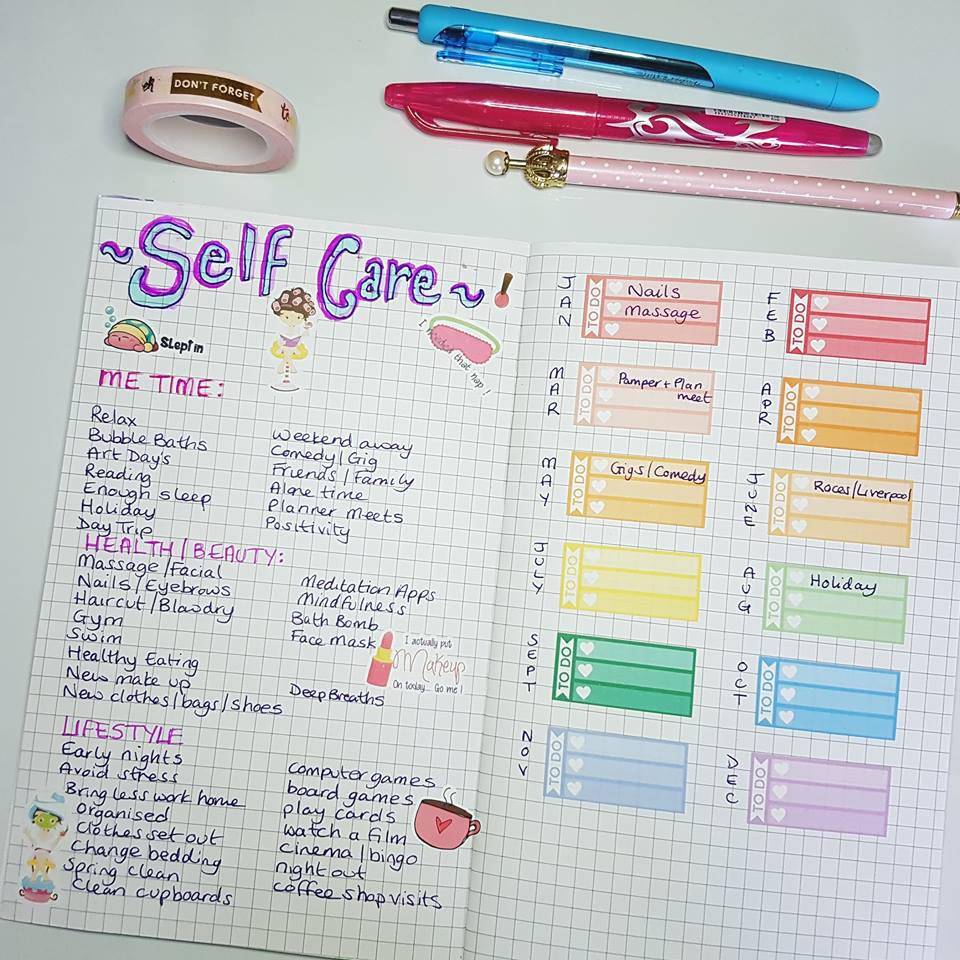 DON'T FORGET
to
~Self Care~!
Slept in
I needed that nap!
ME TIME:
Relax
Bubble Baths
Art Day's
Reading
Enough sleep
Holiday
Day Trip
Weekend away
Comedy/Gig
Friends/Family
Alone time
Planner Meets
Positivity
HEALTH/BEAUTY:
Massage/Facial
Nails/Eyebrows
Haircut/Blowdry
Gym
Swim
Healthy Eating
New make up
New clothes/bags/shoes
Meditation Apps
Mindfulness
Bath Bomb
Face Mask
I actually put
Makeup
On today... Go me!
Deep Breaths
LIFESTYLE
Early nights
Avoid stress
Bring less work home
Organised
Clothes set out
Change bedding
Spring clean
Clean cupboards
Computer games
board games
play cards
watch a film
Cinema/bingo
night out
coffee shop visits
JAN
TO DO
Nails
Massage
FEB
TO DO
MAR
TO DO
Pamper + Plan
meet
APR
TO DO
MAY
TO DO
Gigs/Comedy
JUNE
TO DO
Races/Liverpool
JULY
TO DO
AUG
TO DO
Holiday
SEPT
TO DO
OCT
TO DO
NOV
TO DO
DEC
TO DO